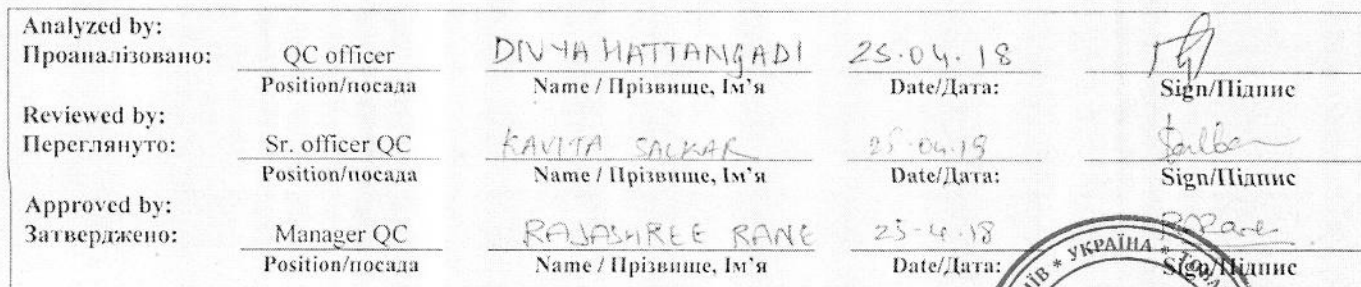 Analyzed by:
Проаналізовано: QC officer DIVYA HATTANGADI 25.04.18
Position/посада Name / Прізвище, Ім’я Date/Дата: Sign/Підпис
Reviewed by:
Переглянуто: Sr. officer QC KAVITA SALKAR 25.04.18 Salkar
Position/посада Name / Прізвище, Ім’я Date/Дата: Sign/Підпис
Approved by:
Затверджено: Manager QC RAJASHREE RANE 25-4-18 RRane
Position/посада Name / Прізвище, Ім’я Date/Дата: Sign/Підпис
* УКРАЇНА *